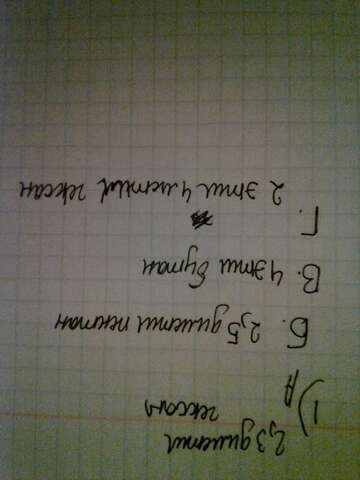 2,3 диметил
1) гексан
А
Б. 2,5 диметил пентан
В. 4 этил бутан
Г.
2 этил 4 метил гексан